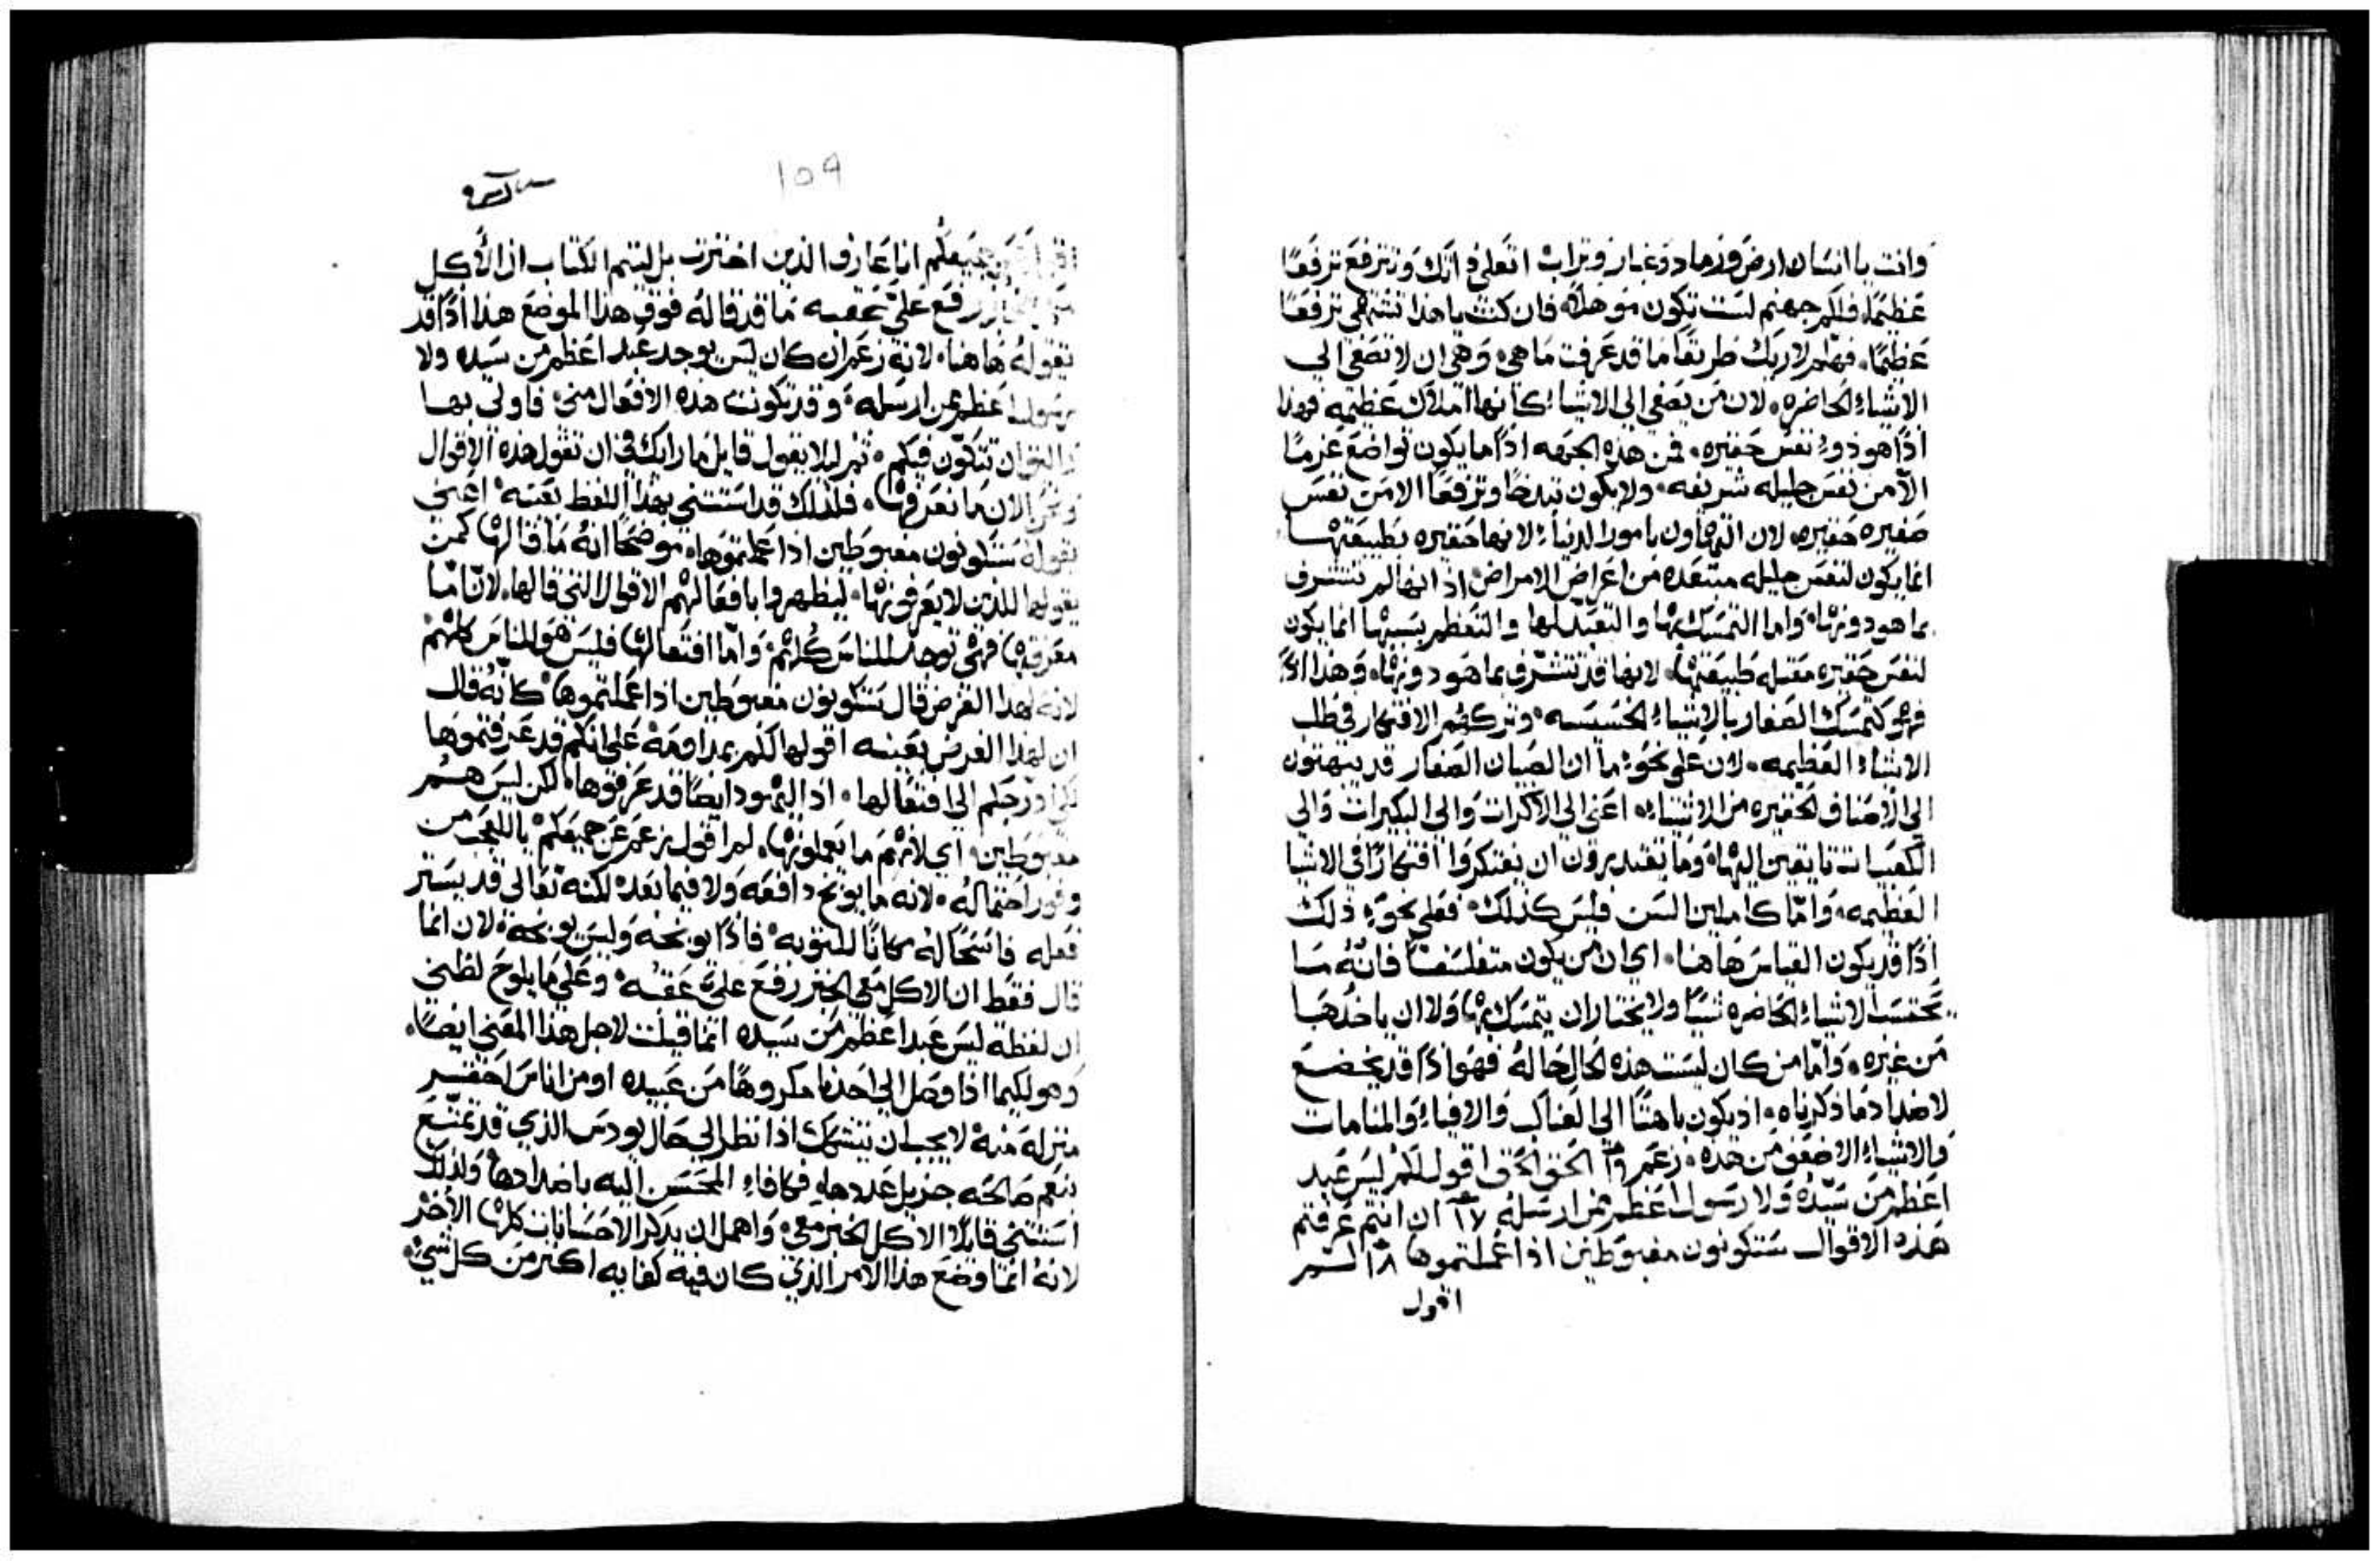 وانت يا انسان ارض ورماد وغبار وتراب اتعلي ذاتك وتترفع ترفعًا
عظيمًا. فلكم جهنم لست تكون موهلاً. فان كنت يا هذا تشتهي ترفعًا
عظيمًا. فهلم لاريك طريقًا ما قد عرفت ما هي. وهي ان لا تصغي الي
الاشياء الحاضره. لان من يصغي الي الاشياء كانها املاك عظيمه فهذا
اذًا هو ذو نفس حقيره. فمن هذه الجهه اذًا ما يكون تواضع عزمًا
الا من نفس جليله شريفه. ولا يكون تبذخًا وترفعًا الا من نفس
صغيره حقيره. لان التهاون بامور الدنيا. لانها حقيره بطبيعتها
انما يكون لنفس جليله مبتعده من اعراض الامراض. اذ انها لم تتشرف
بما هو دونها. واما التمسك بها والتعبد لها والتعظم بسببها انما يكون
لنفس حقيره مقبله طبيعتها. لانها قد تتشرف بما هو دونها. وهذا اذًا
فهو كتمسك الصغار بالاشياء الخسيسه. وتركهم الافتكار في طلب
الاشياء العظيمه. لان علي نحو ما ان الصبيان الصغار قد يبهتون
الي الاصناف الحقيره من الاشياء. اعني الي الاكرات والي البكيرات والي
الكعبات تايقين اليها. وما يقتدرون ان يفتكروا افتكارًا في الاشيا
العظيمه. واما كاملين السن فليس كذلك. فعلي نحو ذلك
اذًا قد يكون القياس هاهنا. اي ان من يكون متفلسفًا فانه ما
يحتسب الاشياء الحاضره شيًا ولا يختار ان يتمسك بها ولا ان ياخذها
من غيره. واما من كان ليست هذه الحال حاله فهو اذًا قد يخضع
لاضداد ما ذكرناه. اذ يكون باهتًا الي العناكب والافياء والمنامات
والاشياء الاضعف من هذه. زعم ١٦ الحق الحق اقول لكم ليس عبد
اعظم من سيده ولا رسول اعظم ممن ارسله ١٧ ان انتم عرفتم
هذه الاقوال ستكونون مغبوطين اذا عملتموها ١٨ لستم
اقول
١٥٩
جميعكم انا عارف الذين اخترت بل ليتم الكتاب ان الاكل
رفع علي عقبه ما قد قاله فوق هذا الموضع هذا اذًا قد
يقوله هاهنا. لانه زعم ان كان ليس يوجد عبد اعظم من سيده ولا
رسول اعظم ممن ارسله. وقد تكونت هذه الافعال مني. فاولي بها
ان تتكون فيكم. ثم ليلا يقول قايل ما رايك في ان تقول هذه الاقوال
الان ما نعرفها. فلذلك قد استثني بهذا اللفظ بعينه. اعني
بقوله ستكونون مغبوطين اذا عملتموها. موضحًا انه ما قالها كمن
يقولها للذين لا يعرفونها. ليظهروا بافعالهم الاقوال التي قالها. لان اما
معرفتها فهي توجد للناس كلهم. واما افتعالها فليس هو للناس كلهم
لانه لهذا الغرض قال ستكونون مغبوطين اذا عملتموها. كانه قال
ان لهذا الغرض بعينه اقولها لكم بمداومه علي انكم قد عرفتموها
لكي ادرجكم الي افتعالها. اذ اليهود ايضًا قد عرفوها. لكن ليس هم
مغبوطين. اي لانهم ما يعملونها. لم اقول زعم عن جميعكم. يا للعجب من
وفور احتماله. لانه ما يوبخ دافعه ولا فيما بعد. لكنه تعالي قد يستر
فعله فاسحًا له مكانًا للتوبه. فاذًا يوبخه وليس يوبخه. لان انما
قال فقط ان الاكل معي الخبز رفع علي عقبه. وعلي ما يلوح لظني
ان لفظة ليس عبدا اعظم من سيده انما قيلت لاجل هذا المعني ايضًا.
وهو لكيما اذا وصل الي احدنا مكروهًا من عبيده او من اناس احقر
منزله منه لا يجب ان ينشهك اذا نظر الي حال يودس الذي قد تمتع
بنعم صالحه جزيل عددها. فكافاء المحسن اليه باضدادها ولذلك
استثني قايلًا الاكل الخبز معي. واهمل ان يذكر الاحسانات كلها الاخر
لانه انما وضع هذا الامر الذي كان فيه كفايه اكثر من كل شي.